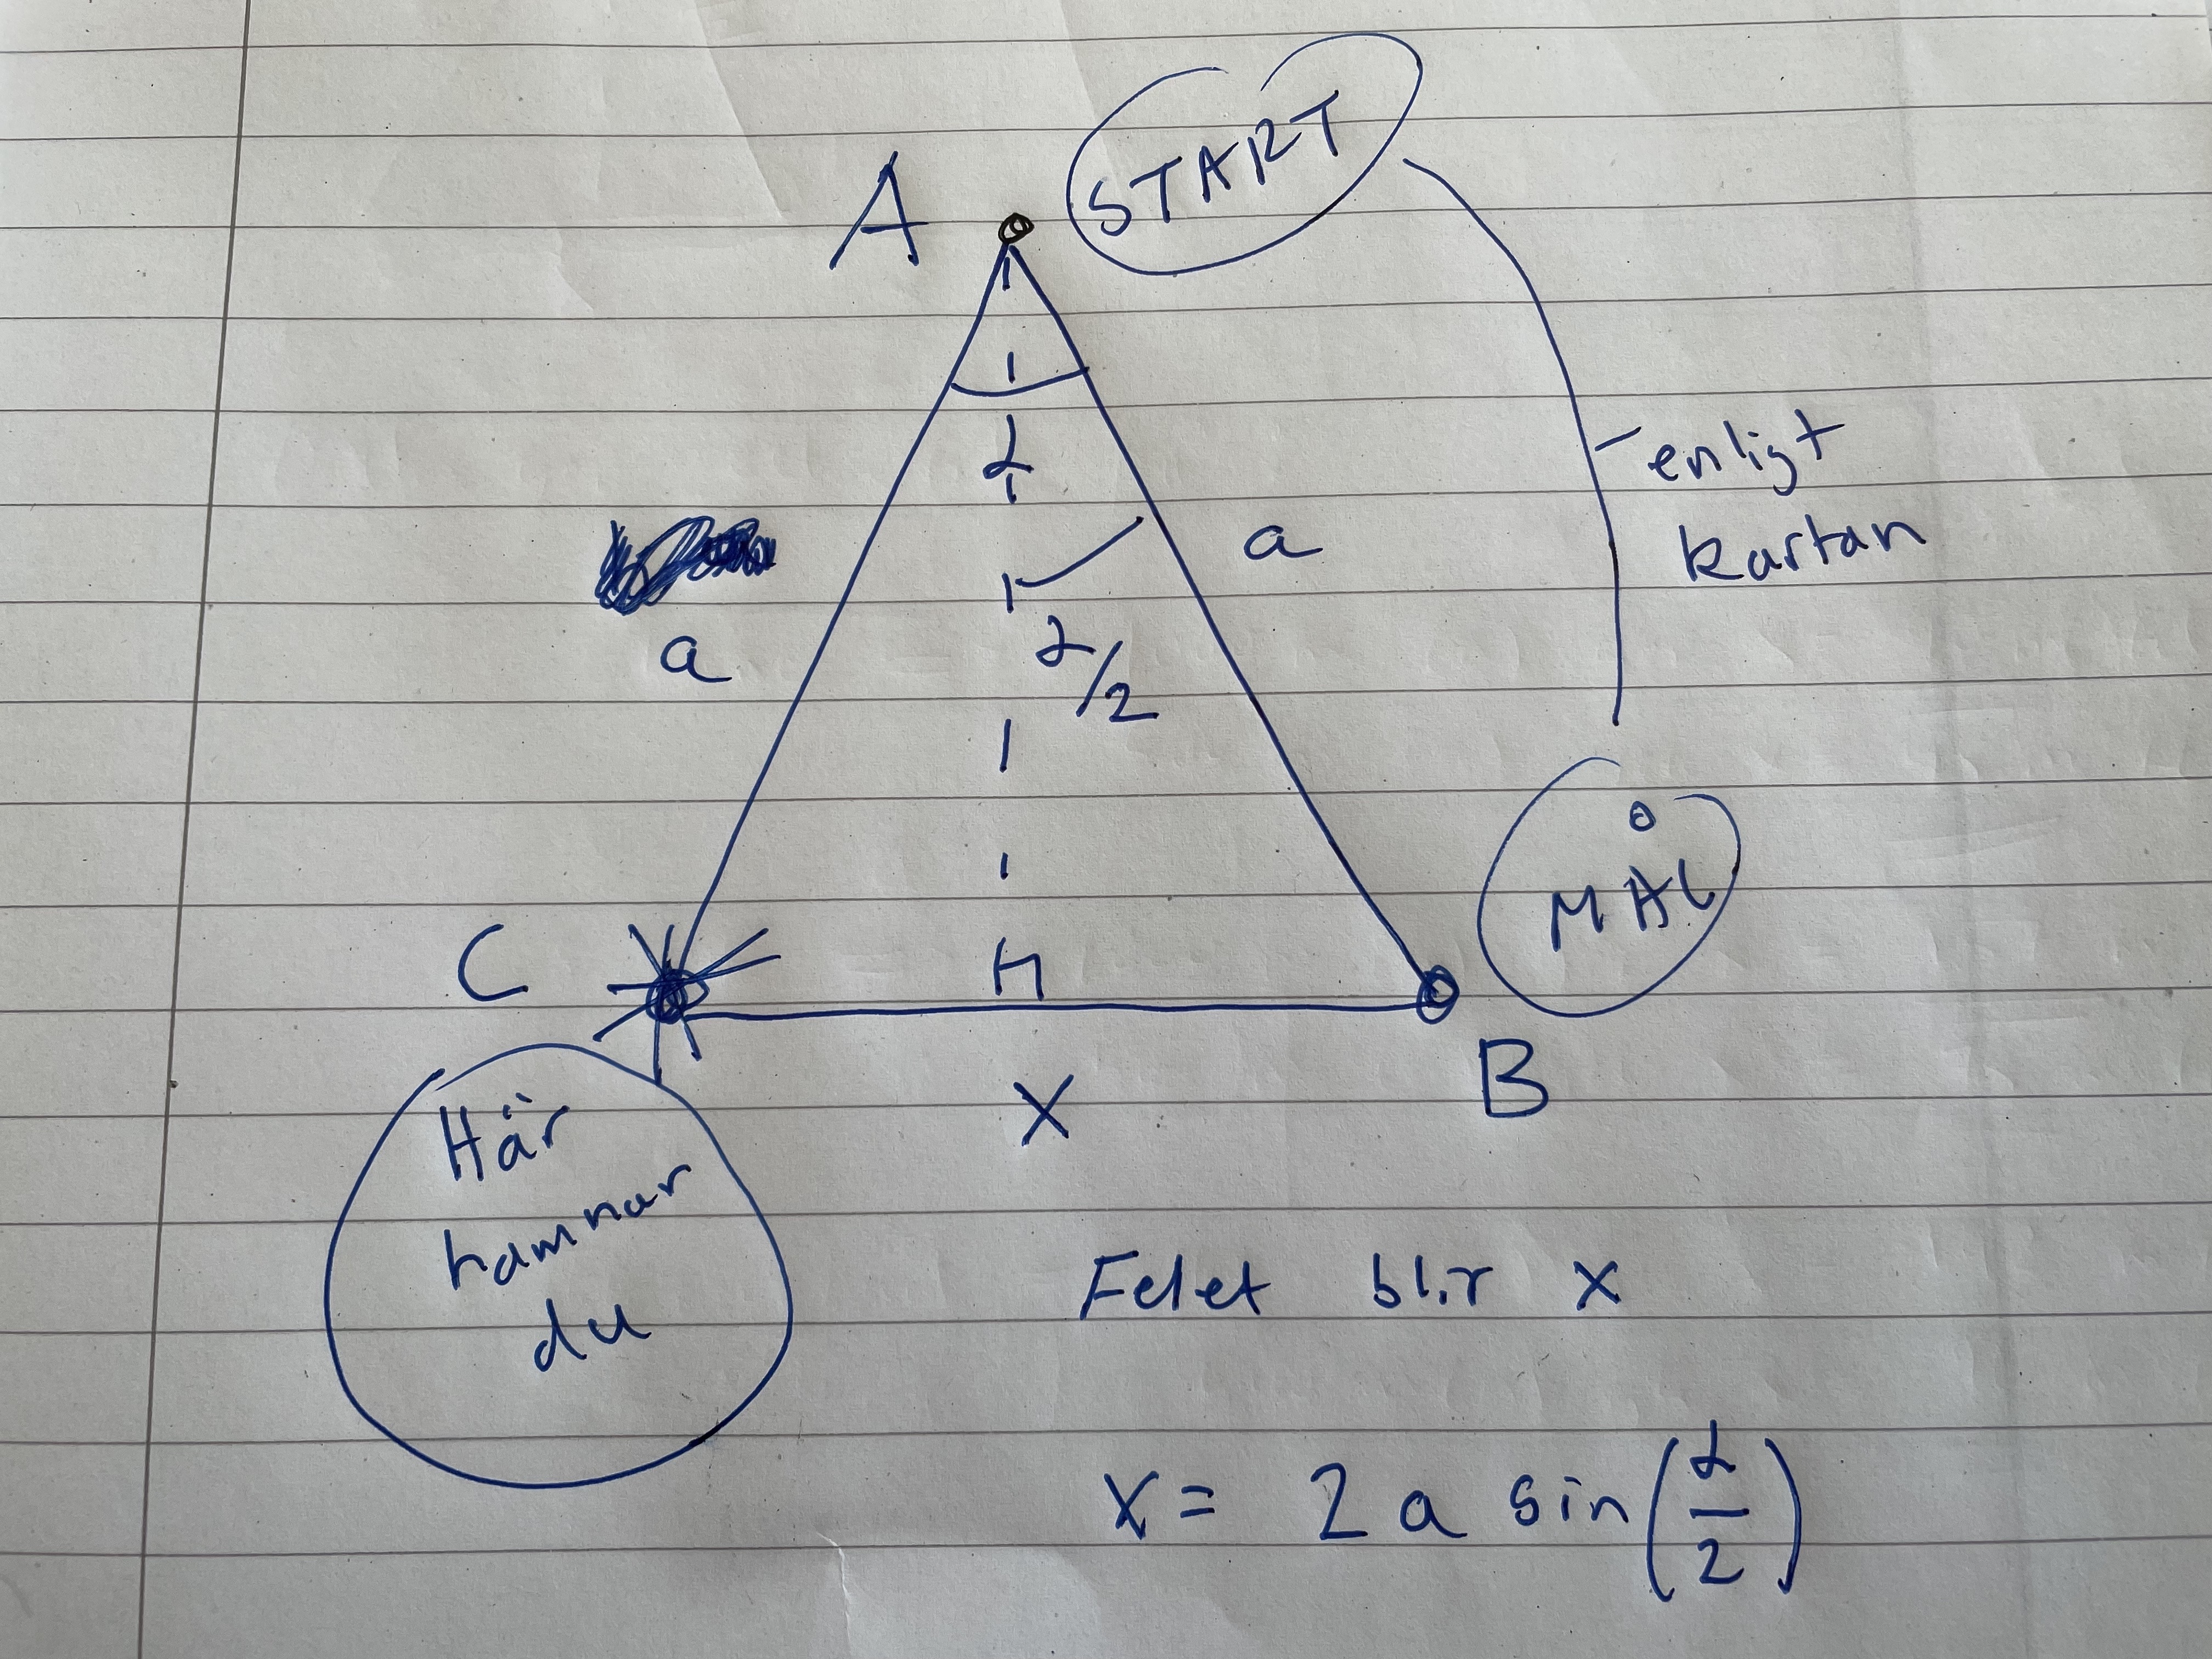 A
START
α
enligt
a
kartan
a
α/2
MÅL
C
B
X
Här
hamnar
du
Felet blir x
x = 2 a sin(α/2)